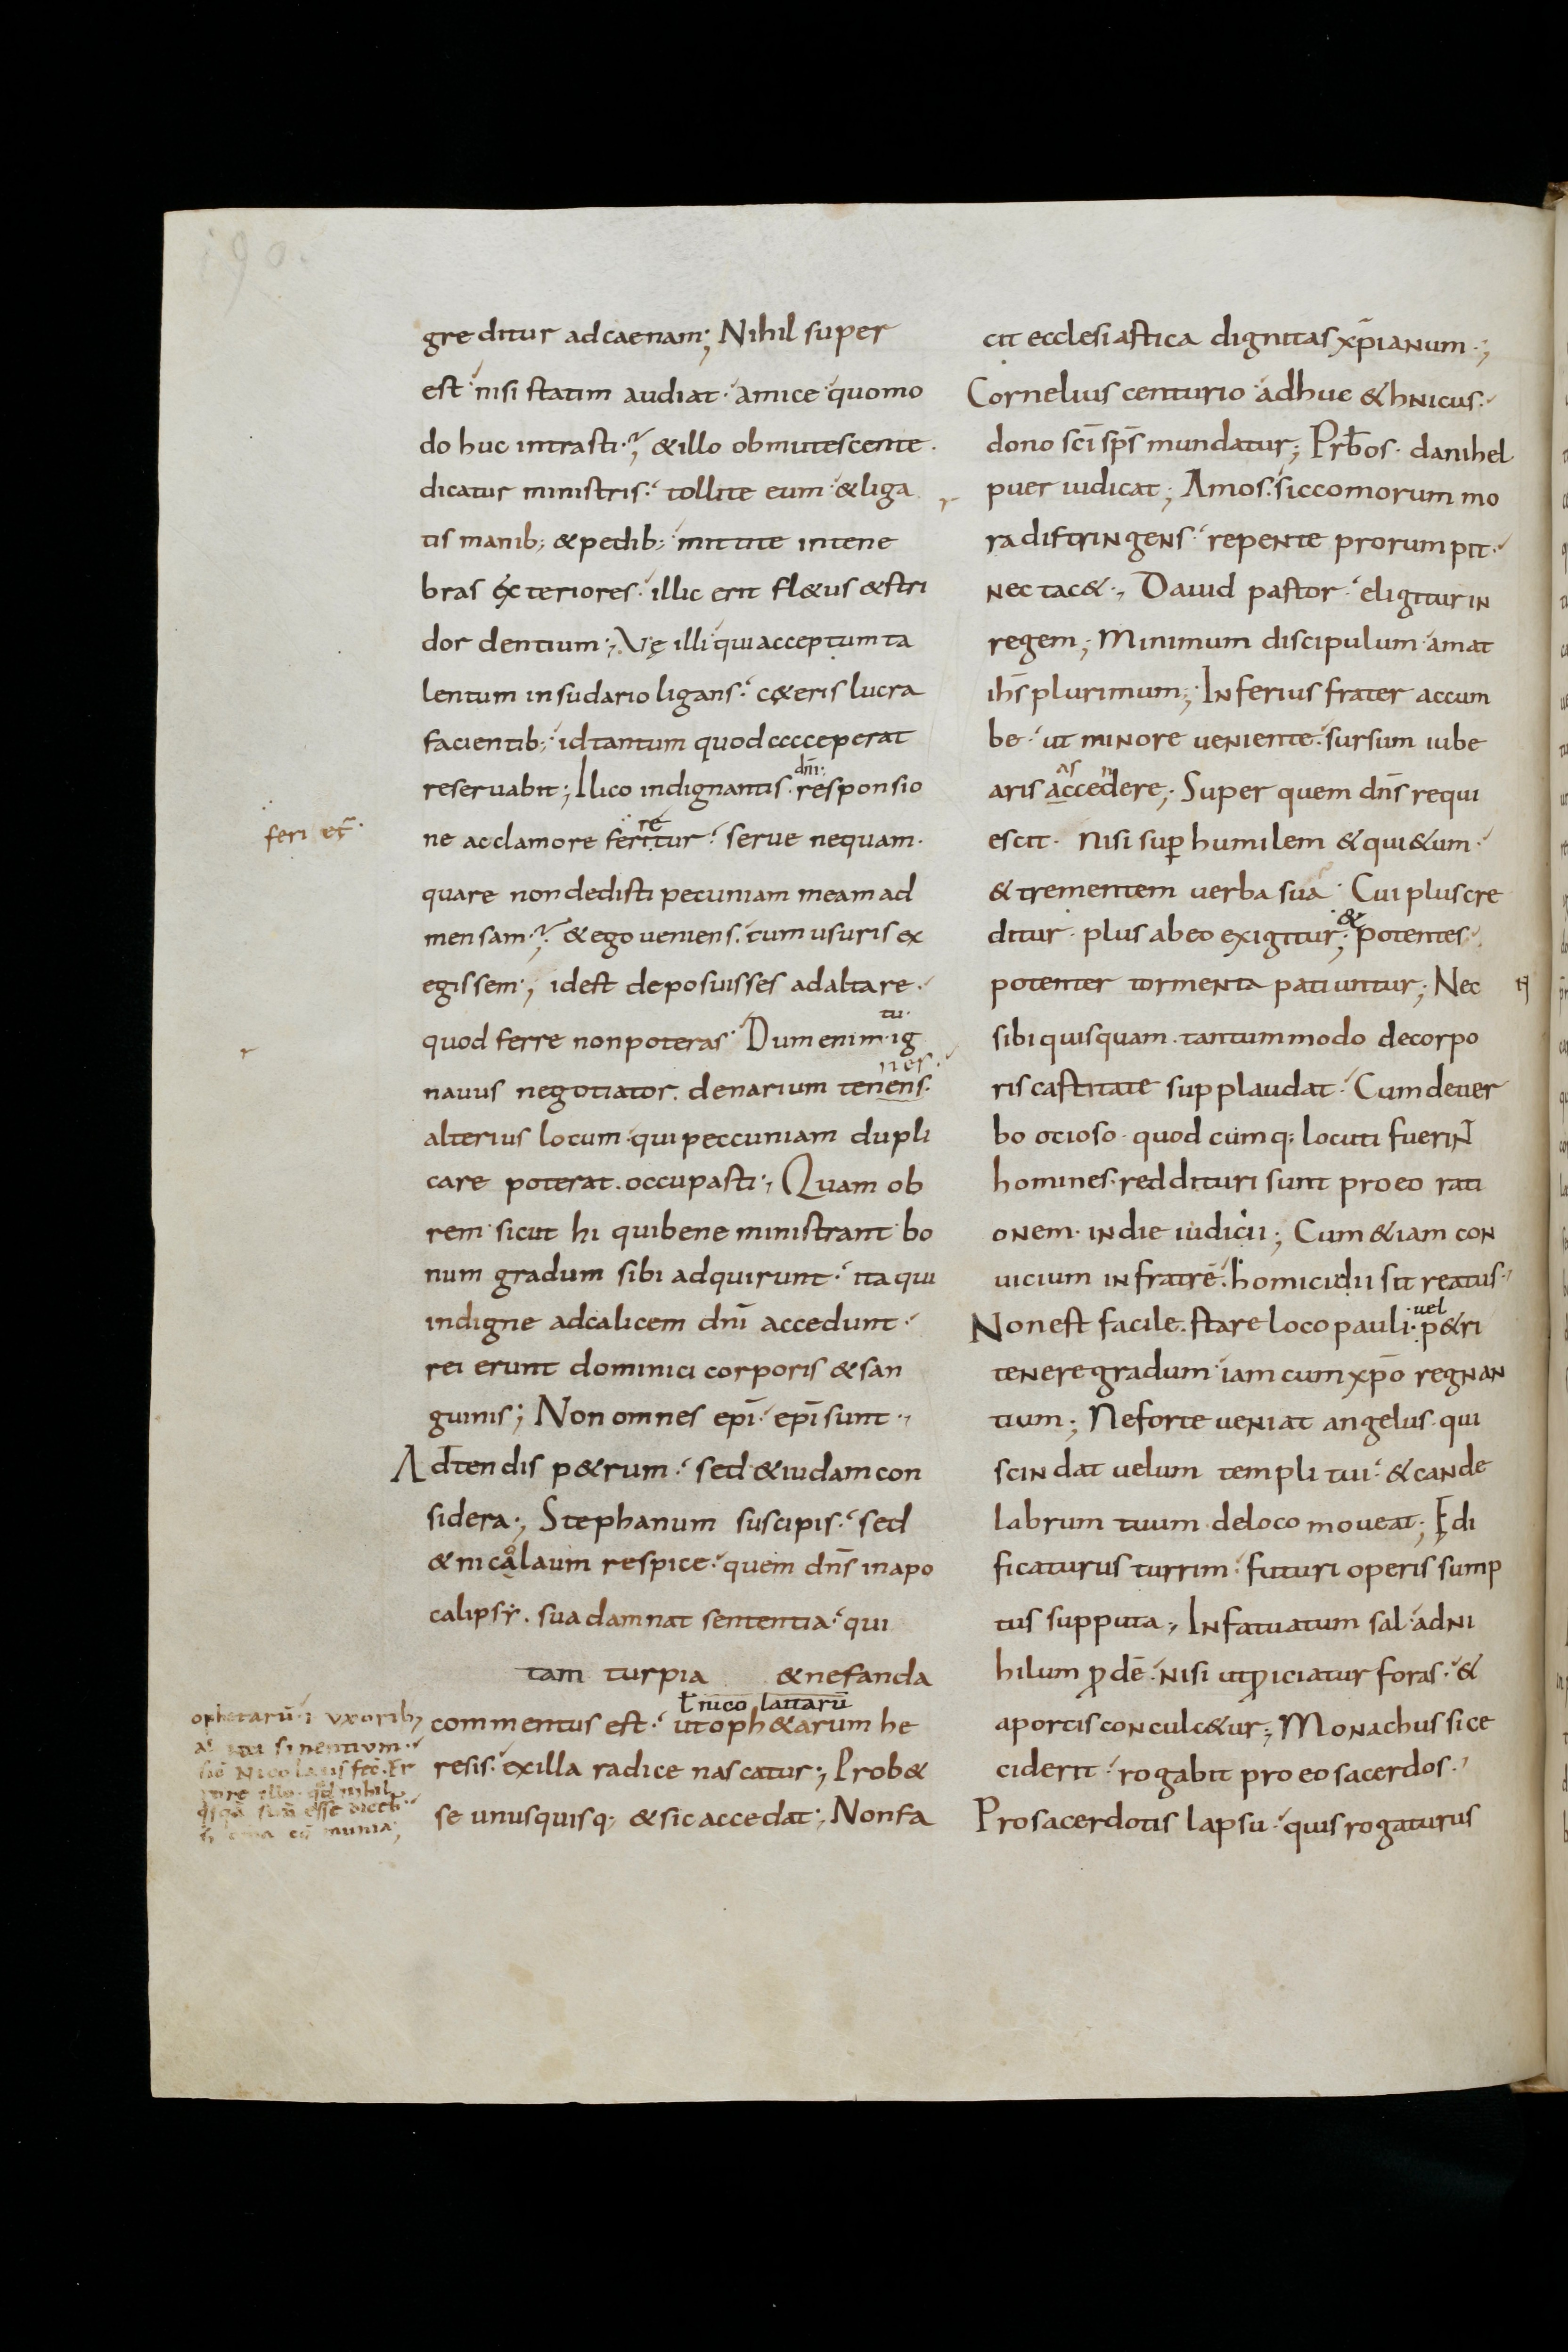 190.
greditur ad caenam; Nihil super
est nisi statim audiat · amice quomo
do huc intrasti? & illo obmutescente.
dicatur ministris · tollite eum · & liga
tis manib; & pedib; mittite in tene
bras exteriores · illic erit fl&us & stri
dor dentium; Vę illi qui acceptum ta
lentum in sudario ligans · c&eris lucra
facientib; id tantum quod acceperat
reseruabit; Ilico indignantis · responsio
dnī
ne ac clamore feritur · serue nequam ·
re
feri
quare non dedisti pecuniam meam ad
mensam? & ego ueniens · cum usuris ex
egissem; id est deposuisses ad altare ·
quod ferre non poteras · Dum enim · ig
tu
nauus negotiator · denarium tenens ·
nes
alterius locum · qui peccuniam dupli
care poterat · occupasti; Quam ob
rem sicut hi qui bene ministrant bo
num gradum sibi adquirunt · ita qui
indigne ad calicem dnī accedunt ·
rei erunt dominici corporis & san
guinis; Non omnes epī · epī sunt ·
Adtendis p&rum · sed & iudam con
sidera; Stephanum suscipis · sed
& nicalaum respice · quem dn̄s in apo
o
calipsi · sua damnat sententia · qui
tam turpia & nefanda
commentus est · ut oph&arum he
nicolaitarū
resis · ex illa radice nascatur; Prob&
se unusquisq; & sic accedat; Non fa
ophetarū · i uxorib;
cit ecclesiastica dignitas xp̄ianum ·;
Cornelius centurio · adhuc &hnicus ·
dono scī sp̄s mundatur; Prb̄os · danihel
puer iudicat; Amos · siccomorum mo
ra distringens · repente prorumpit ·
nec tac& · Dauid pastor · eligitur in
regem; Minimum discipulum · amat
ih̄s plurimum; Inferius frater accum
be · ut minore ueniente · sursum iube
aris accedere; Super quem dn̄s requi
as n
escit · Nisi sup humilem & qui&um ·
& trementem uerba sua · Cui plus cre
ditur · plus ab eo exigitur; potentes
&
potenter tormenta patiuntur; Nec
sibi quisquam · tantummodo de corpo
ris castitate supplaudat · Cum de uer
bo ocioso · quodcumq; locuti fuerint
homines · reddituri sunt pro eo rati
onem · in die iudicii; Cum &iam con
uicium in fratrē · homicidii sit reatus ·
Non est facile · stare loco pauli · p&ri
uel
tenere gradum · iam cum xp̄o regnan
tium; Ne forte ueniat angelus · qui
scindat uelum templi tui · & cande
labrum tuum de loco moueat; Ędi
ficaturus turrim · futuri operis sump
tus supputa; Infatuatum sal · ad ni
hilum p dē · nisi ut piciatur foras · &
a porcis conculc&ur; Monachus si ce
ciderit · rogabit pro eo sacerdos ·
Pro sacerdotis lapsu · quis rogaturus